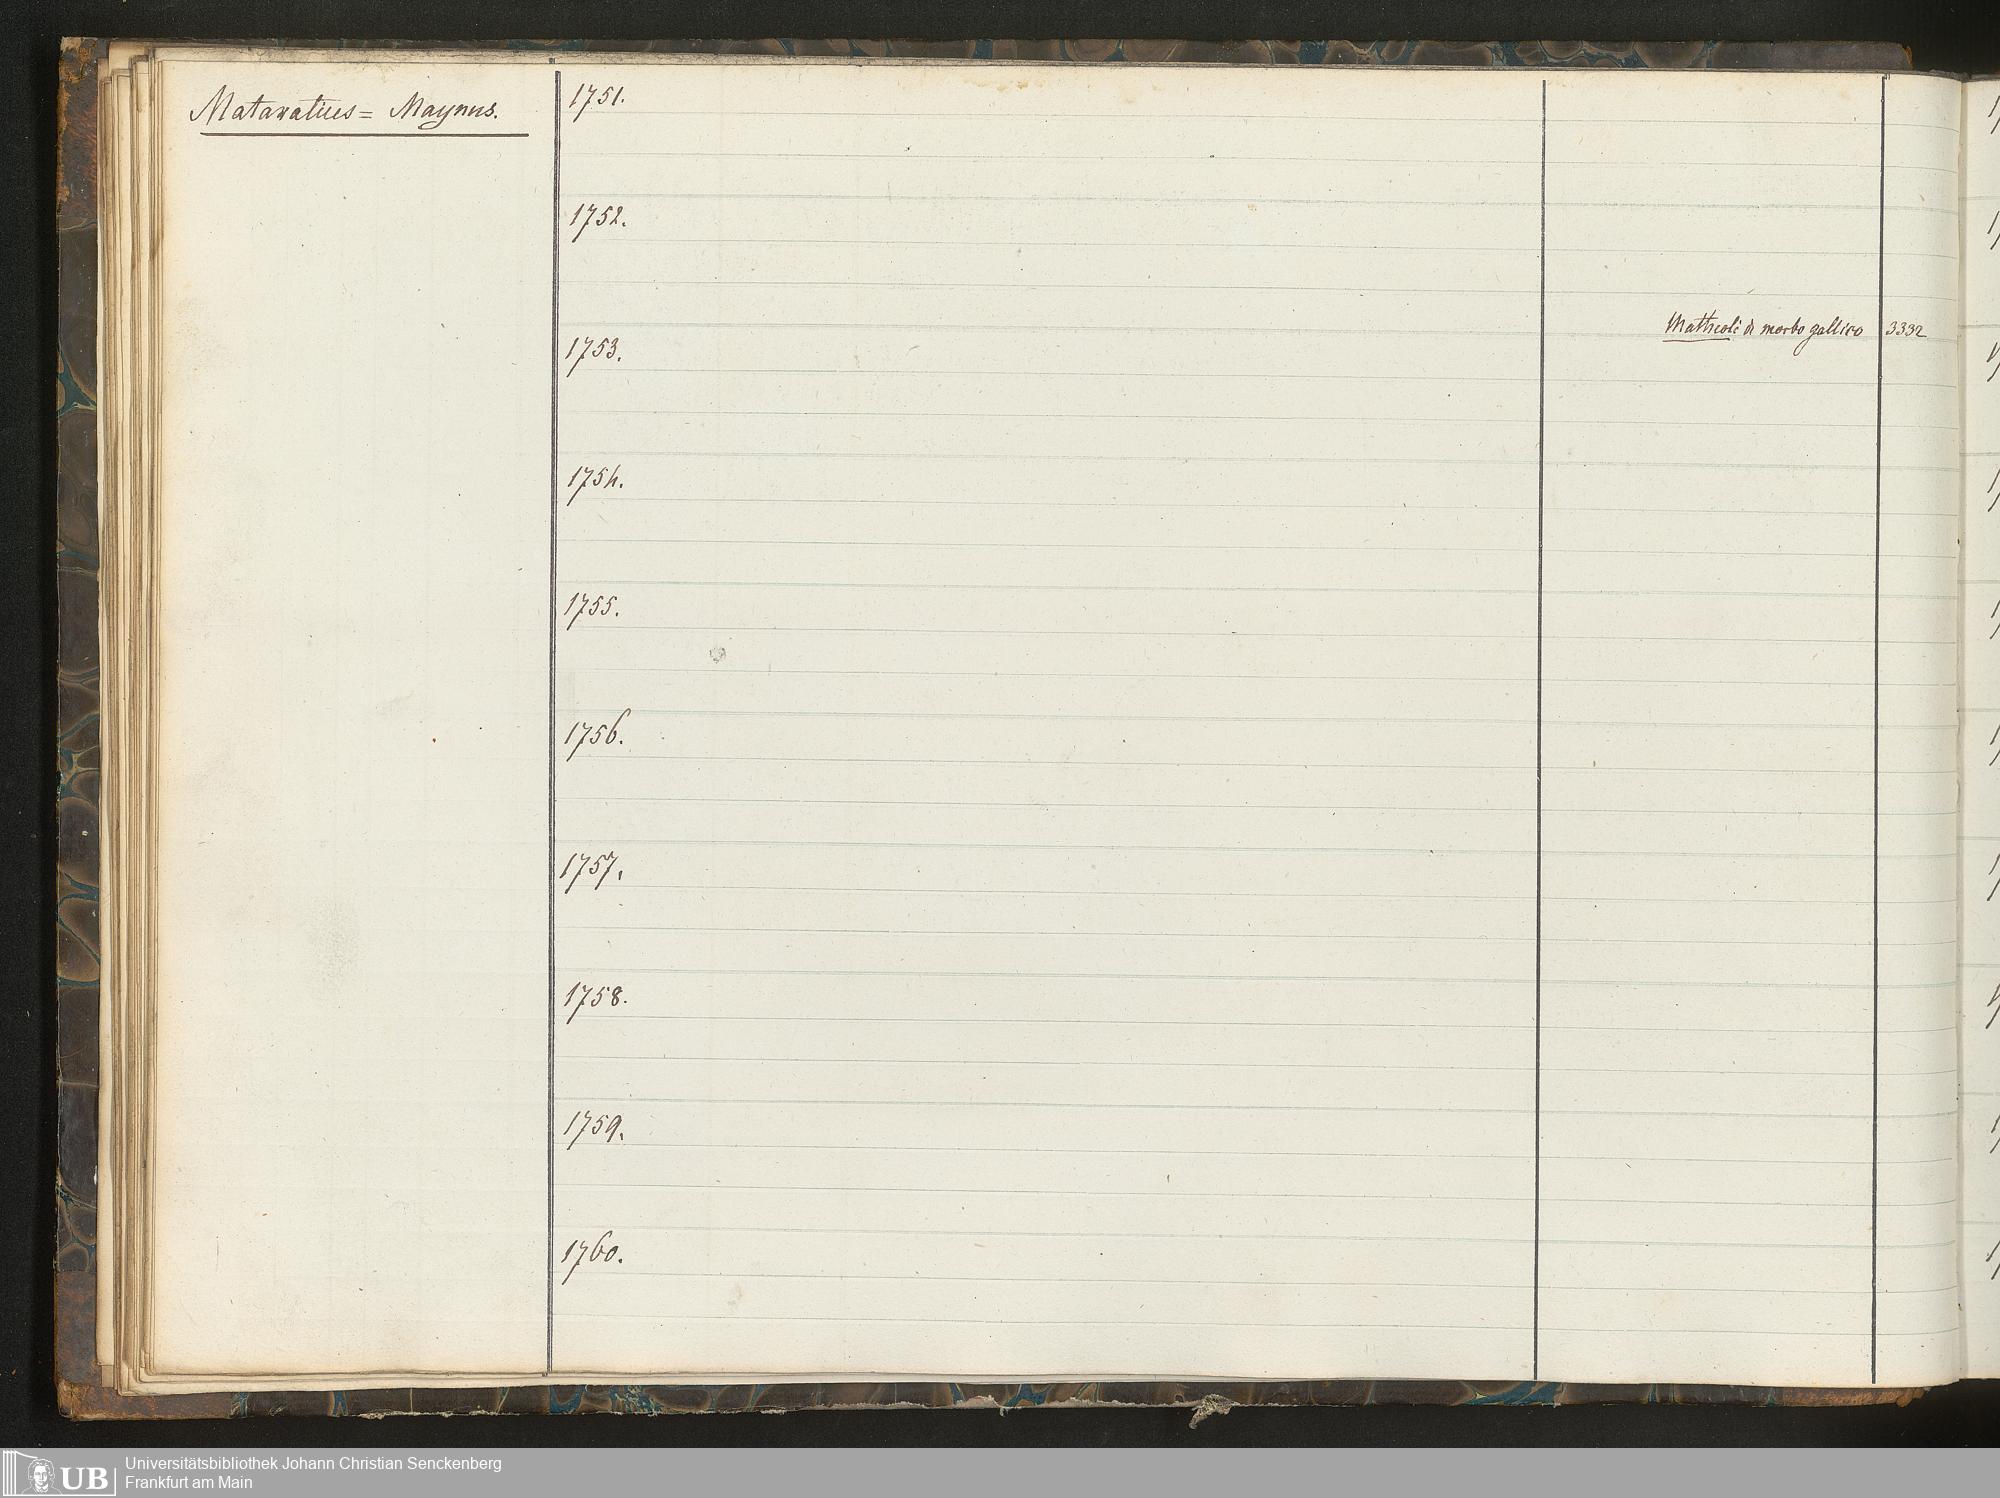 Mataratius = Maynus.
1751.
1752.
Matthioli di morbo gallico 3332
1753.
1754.
1755.
1756.
1757.
1758.
1759.
1760.
UB
Universitätsbibliothek Johann Christian Senckenberg
Frankfurt am Main